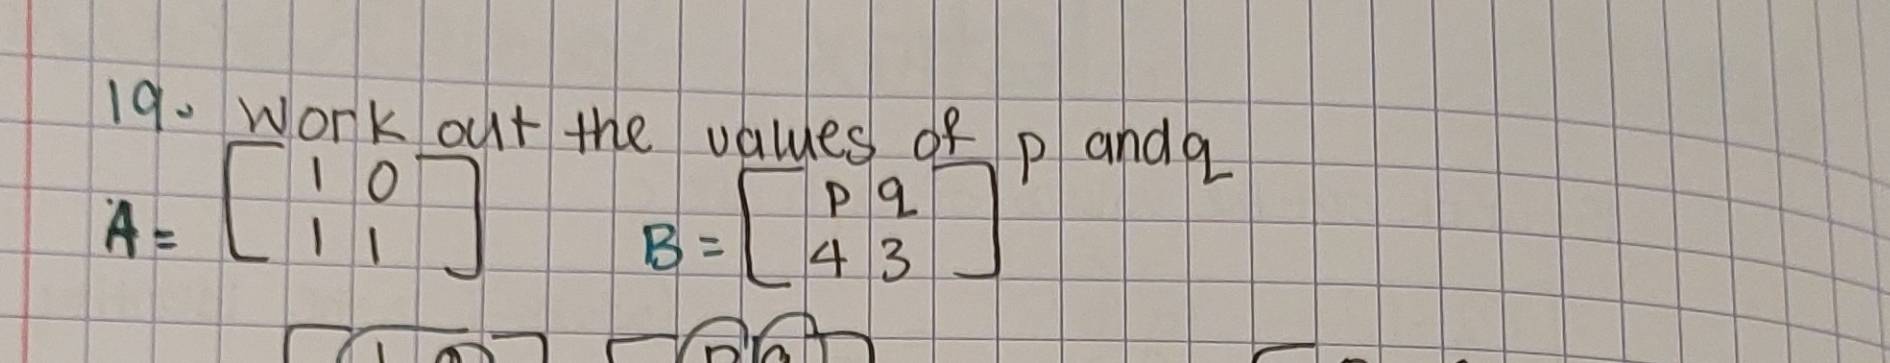 19. Work out the values of p and q
A = [ 1 0 B = [ p q
1 1 ] 4 3 ]